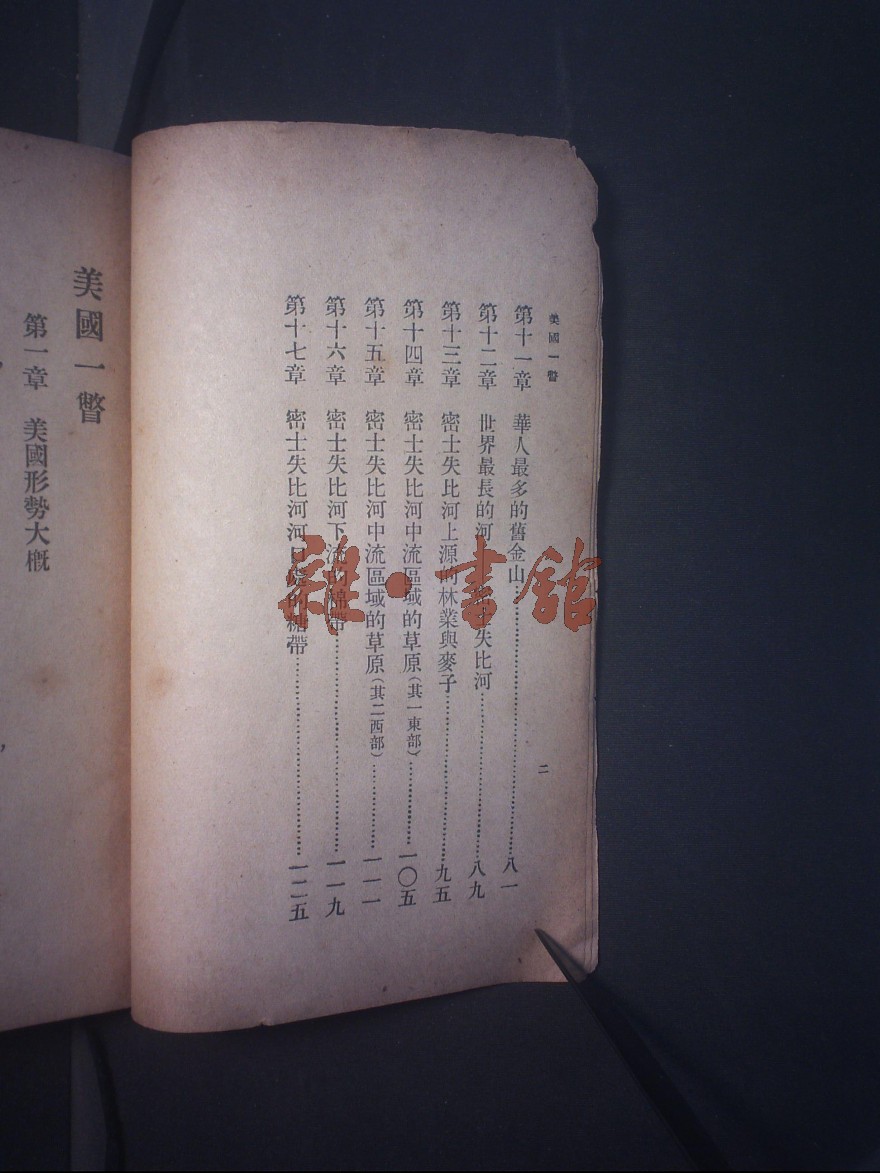 美國一瞥
二
第十一章 華人最多的舊金山……八一
第十二章 世界最長的河 失比河……八九
第十三章 密士失比河上源的林業與麥子……九五
第十四章 密士失比河中流區域的草原(其一東部)……一〇五
第十五章 密士失比河中流區域的草原(其二西部)……一一一
第十六章 密士失比河下流的棉帶……一一九
第十七章 密士失比河河口 的糖帶……一二五
美國一瞥
第一章 美國形勢大概
雜·書館